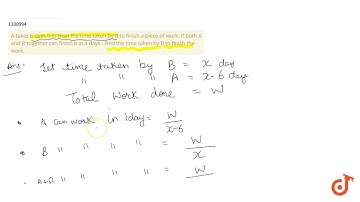 1338994
A takes 6 days less than the time taken by B to finish a piece of work. If both A
and B together can finish it in 4 days , Find the time taken by B to finish the
work.
Ans: Let time taken by B = x day
" " " A = x-6 day
Total Work done = W
* A can work in 1 day = W/x-6
* B " " " " = W/x
A+B " " " " = W
doubtnut